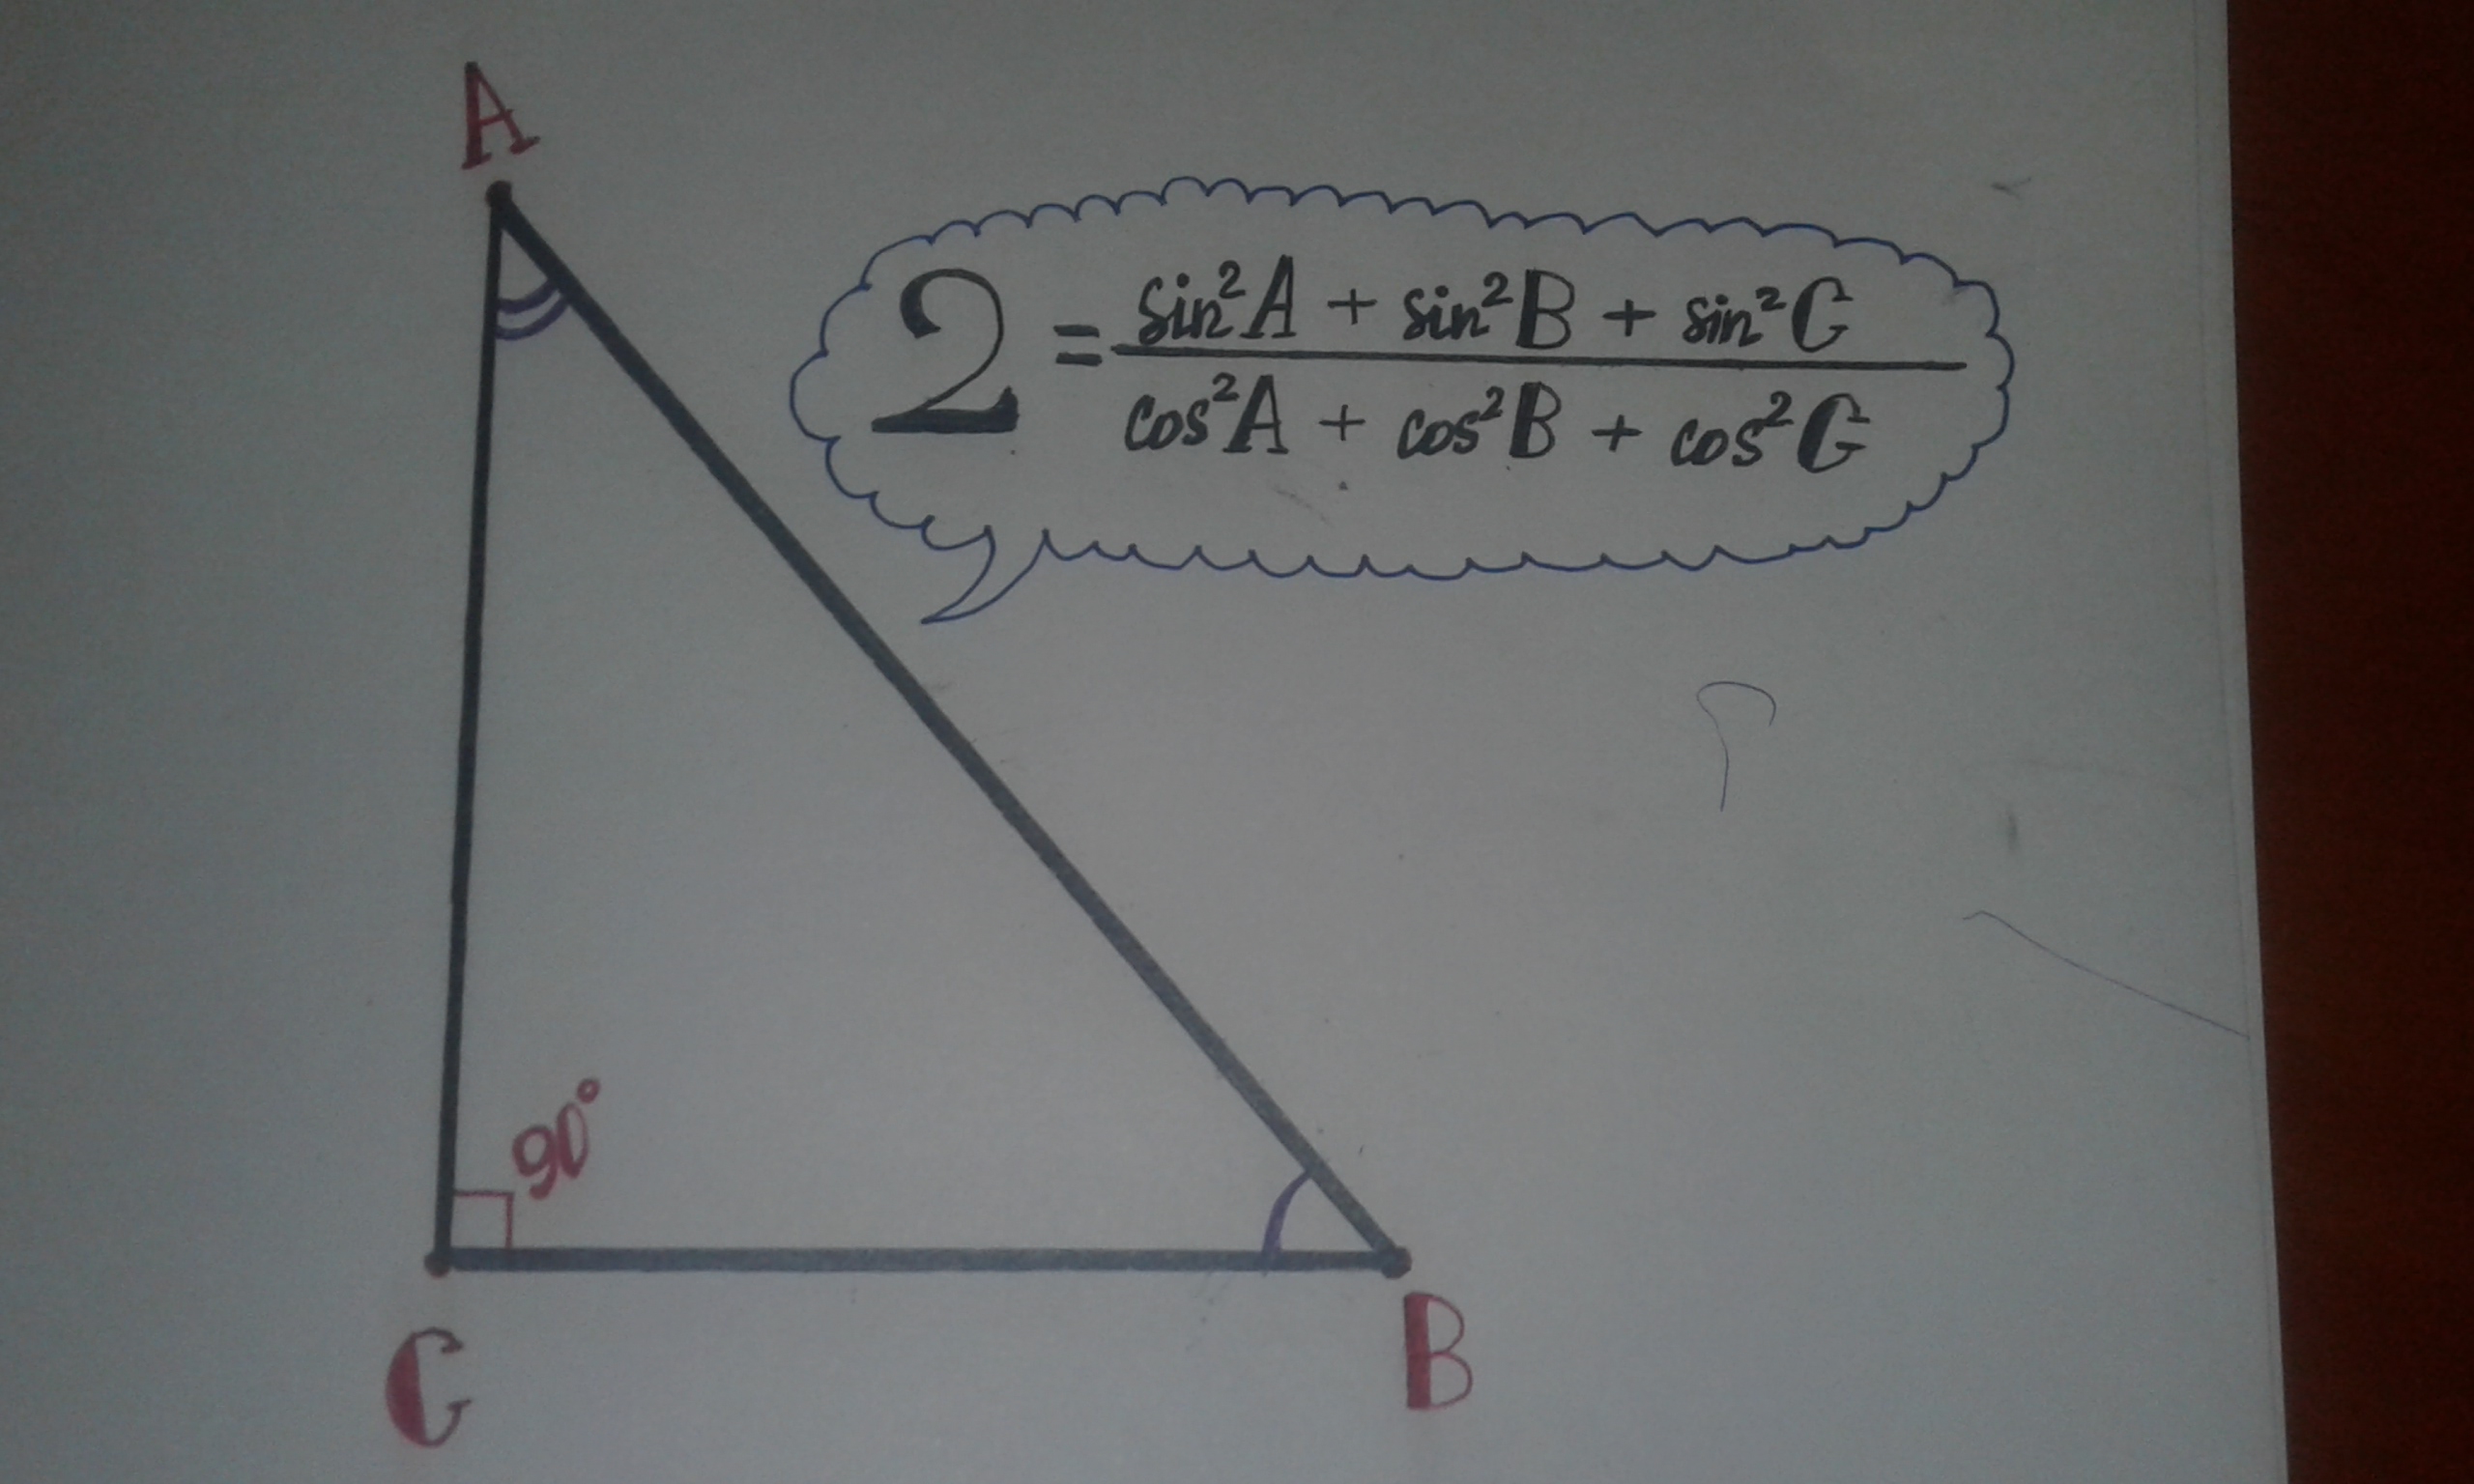 A
2 = sin²A + sin²B + sin²C
cos²A + cos²B + cos²C
90°
C
B